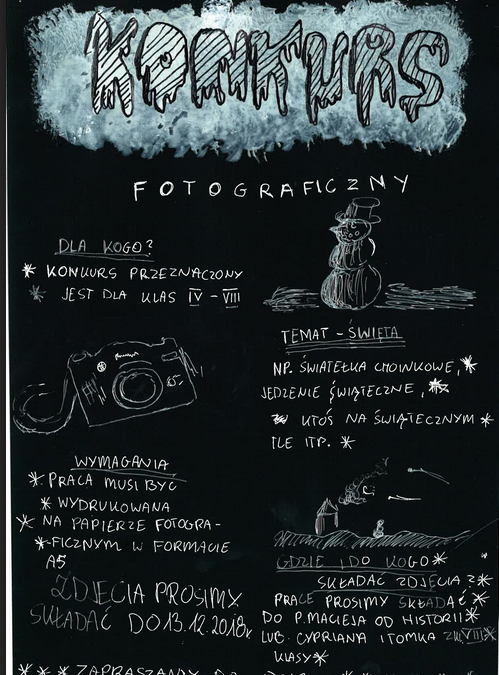 KONKURS
FOTOGRAFICZNY
DLA KOGO?
* KONKURS PRZEZNACZONY
* JEST DLA KLAS IV - VIII
TEMAT - ŚWIĘTA
NP. ŚWIATEŁKA CHOINKOWE, *
JEDZENIE ŚWIĄTECZNE, *
KTOŚ NA ŚWIĄTECZNYM *
TLE ITP. *
WYMAGANIA
* PRACA MUSI BYĆ
* WYDRUKOWANA
* NA PAPIERZE FOTOGRA-
*-FICZNYM W FORMACIE
A5
ZDJĘCIA PROSIMY
SKŁADAĆ DO 13.12.2018r.
GDZIE I DO KOGO *
SKŁADAĆ ZDJĘCIA? *
PRACE PROSIMY SKŁADAĆ *
DO P. MACIEJA OD HISTORII *
LUB CYPRIANA I TOMKA Z KL VIII *
KLASY *
* * * ZAPRASZAMY DO